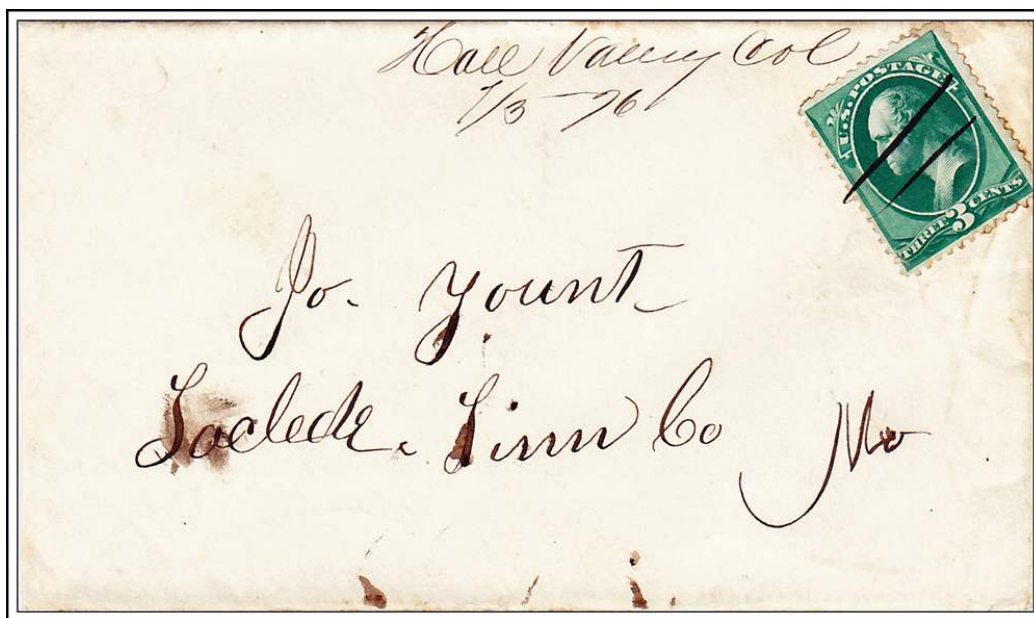 Hall Valley Col
7/3 76
U.S. POSTAGE
THREE 3 CENTS
Jo. Yount
Laclede. Linn Co Mo